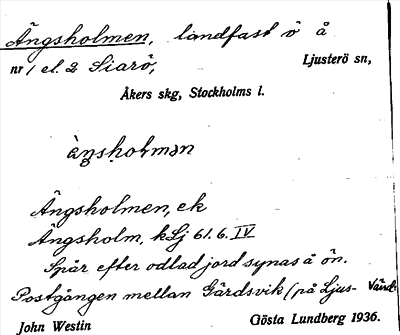 Ängsholmen, landfast ö å
nr 1 el. 2 Siarö, Ljusterö sn,
Åkers skg, Stockholms l.
Ängsholmen, ek
Ängsholm, kLj 61.6. IV
Spår efter odlad jord synas å ön.
Postgången mellan Gärdsvik (på Ljus- Vänd.
John Westin Gösta Lundberg 1936.